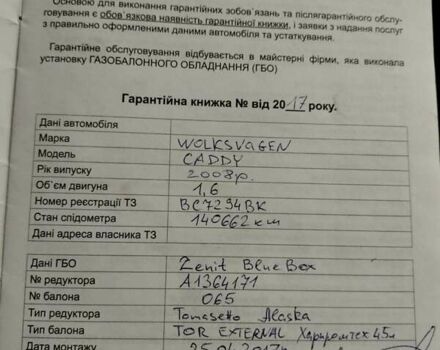 Основою для виконання гарантійних зобов`язань та післягарантійного обслу-
говування є обов`язкова наявність гарантійної книжки, і заявки з надання послуг
з правильно оформленими даними автомобіля та устаткування.
Гарантійне обслуговування відбувається в майстерні фірми, яка виконала
установку ГАЗОБАЛОННОГО ОБЛАДНАННЯ (ГБО)
Гарантійна книжка № від 2017 року.
Дані автомобіля
Марка WOLKSVAGEN
Модель CADDY
Рік випуску 2008р.
Об`єм двигуна 1,6
Номер реєстрації ТЗ BC7294BK
Стан спідометра 140662 km
Дані адреса власника ТЗ
Дані ГБО Zenit Blue Box
№ редуктора A1364171
№ балона 065
Тип редуктора Tomasetto Alaska
Тип балона TOR EXTERNAL Харпромтех 45л
Дата монтажу